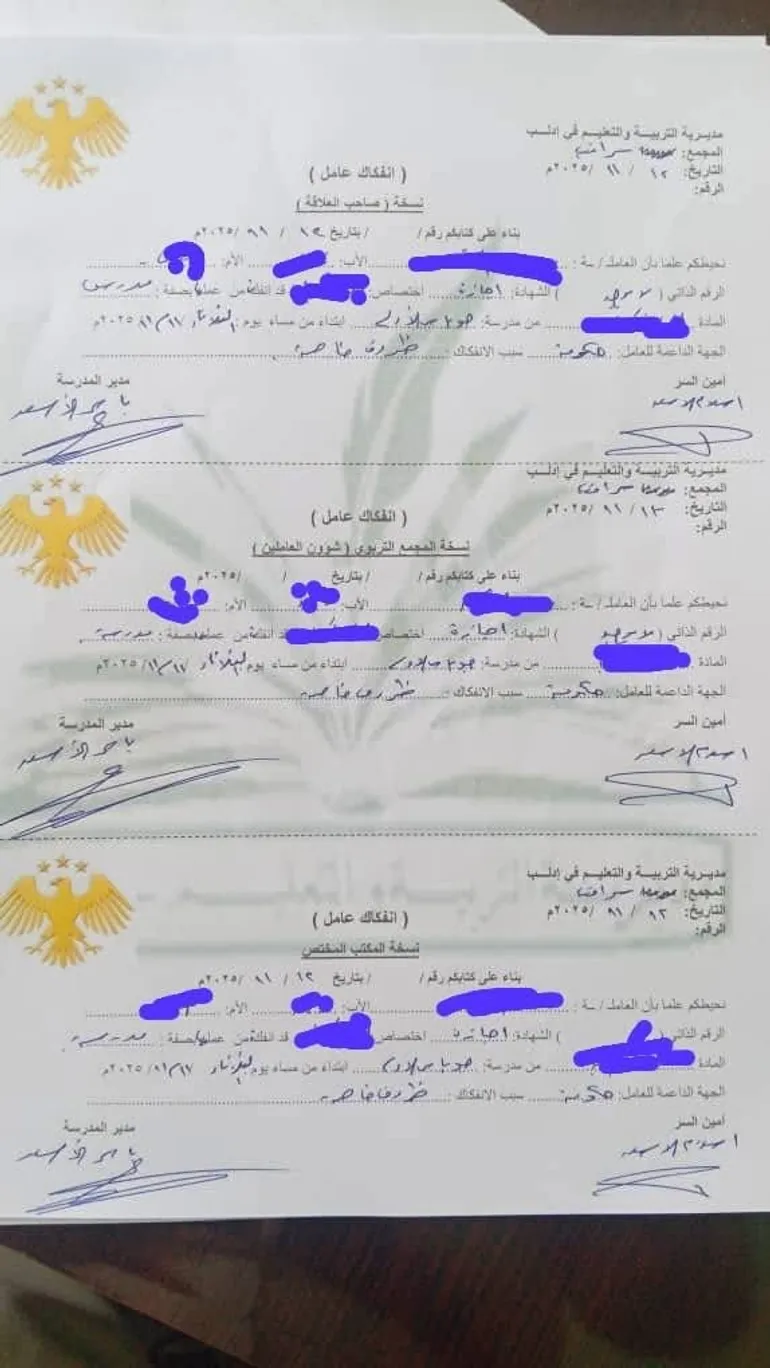 مديرية التربية والتعليم في إدلب
المجمع: سراقب
التاريخ: ١٢ / ١١ /٢٠٢٥م
الرقم:
( انفكاك عامل )
نسخة ( صاحب العلاقة )
بناء على كتابكم رقم / / بتاريخ ١٢ / ١١ /٢٠٢٥م
نحيطكم علما بأن العامل/ ـة : الأب: الأم:
الرقم الذاتي ( ) الشهادة: اجازة اختصاص: قد انفك من عمله بصفة : مدرس
المادة من مدرسة: ابتداء من مساء يوم: الثلاثاء ٢٠٢٥/١١/١٧م
الجهة الداعمة للعامل: حكومية سبب الانفكاك : ظروف خاصة
أمين السر مدير المدرسة
مديرية التربية والتعليم في إدلب
المجمع: سراقب
التاريخ: ١٢ / ١١ /٢٠٢٥م
الرقم:
( انفكاك عامل )
نسخة المجمع التربوي ( شؤون العاملين )
بناء على كتابكم رقم / / بتاريخ / /٢٠٢٥م
نحيطكم علما بأن العامل/ ـة : الأب: الأم:
الرقم الذاتي ( ) الشهادة: اجازة اختصاص: قد انفك من عمله بصفة : مدرسة
المادة من مدرسة: ابتداء من مساء يوم: الثلاثاء ٢٠٢٥/١١/١٧م
الجهة الداعمة للعامل: حكومية سبب الانفكاك : ظروف خاصة
أمين السر مدير المدرسة
مديرية التربية والتعليم في إدلب
المجمع: سراقب
التاريخ: ١٢ / ١١ /٢٠٢٥م
الرقم:
( انفكاك عامل )
نسخة المكتب المختص
بناء على كتابكم رقم / / بتاريخ ١٢ / ١١ /٢٠٢٥م
نحيطكم علما بأن العامل/ ـة : الأب: الأم:
الرقم الذاتي ( ) الشهادة: اجازة اختصاص: قد انفك من عمله بصفة : مدرسة
المادة من مدرسة: ابتداء من مساء يوم: الثلاثاء ٢٠٢٥/١١/١٧م
الجهة الداعمة للعامل: حكومية سبب الانفكاك : ظروف خاصة
أمين السر مدير المدرسة